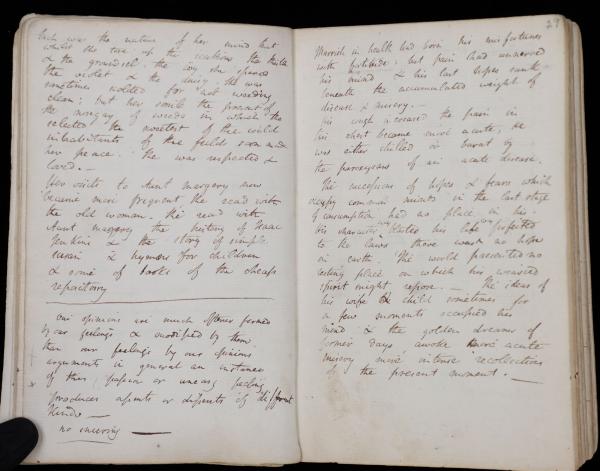 Such was the nature of her mind that
whilst she tore up the the thistle
& the groundsel, the she spared
the violet & the daisy. She was
sometimes scolded for not weeding
clean; but her smile the present of
the nosegay of weeds in which she
selected the sweetest of the wild
inhabitants of the fields soon made
her peace. She was respected &
loved. —
Her visits to Aunt Margery now
became more frequent she read with
the old woman. She read with
Aunt Margery the history of Isaac
Jenkins & the story of simple
Susan & hymns for children
& some of books of the cheap
repository
our opinions are much oftener formed
by our feelings & modified by them
than our feelings by our opinions
arguments in general are instances
of this; passion or uneasy feeling
produces assents or dissents of different
kinds —
no sneering —
29
Marrick in health had born his misfortunes
with fortitude; but pain had unnerved
his mind & his last hopes sank
beneath the accumulated weight of
disease & misery. —
his cough increased the pain in
his chest became more acute, he
was either chilled or burnt by
the paroxysms of an acute disease.
The succession of hopes & fears which
occupy common minds in the last stage
of consumption had no place in his.
his character his life
to the laws there was no hope
on earth. The world presented no
resting place on which his wearied
spirit might repose. — The ideas of
his wife & child sometimes for
a few moments occupied his
mind & the golden dreams of
former days awoke more acute
misery more intense recollections
of the present moment. —